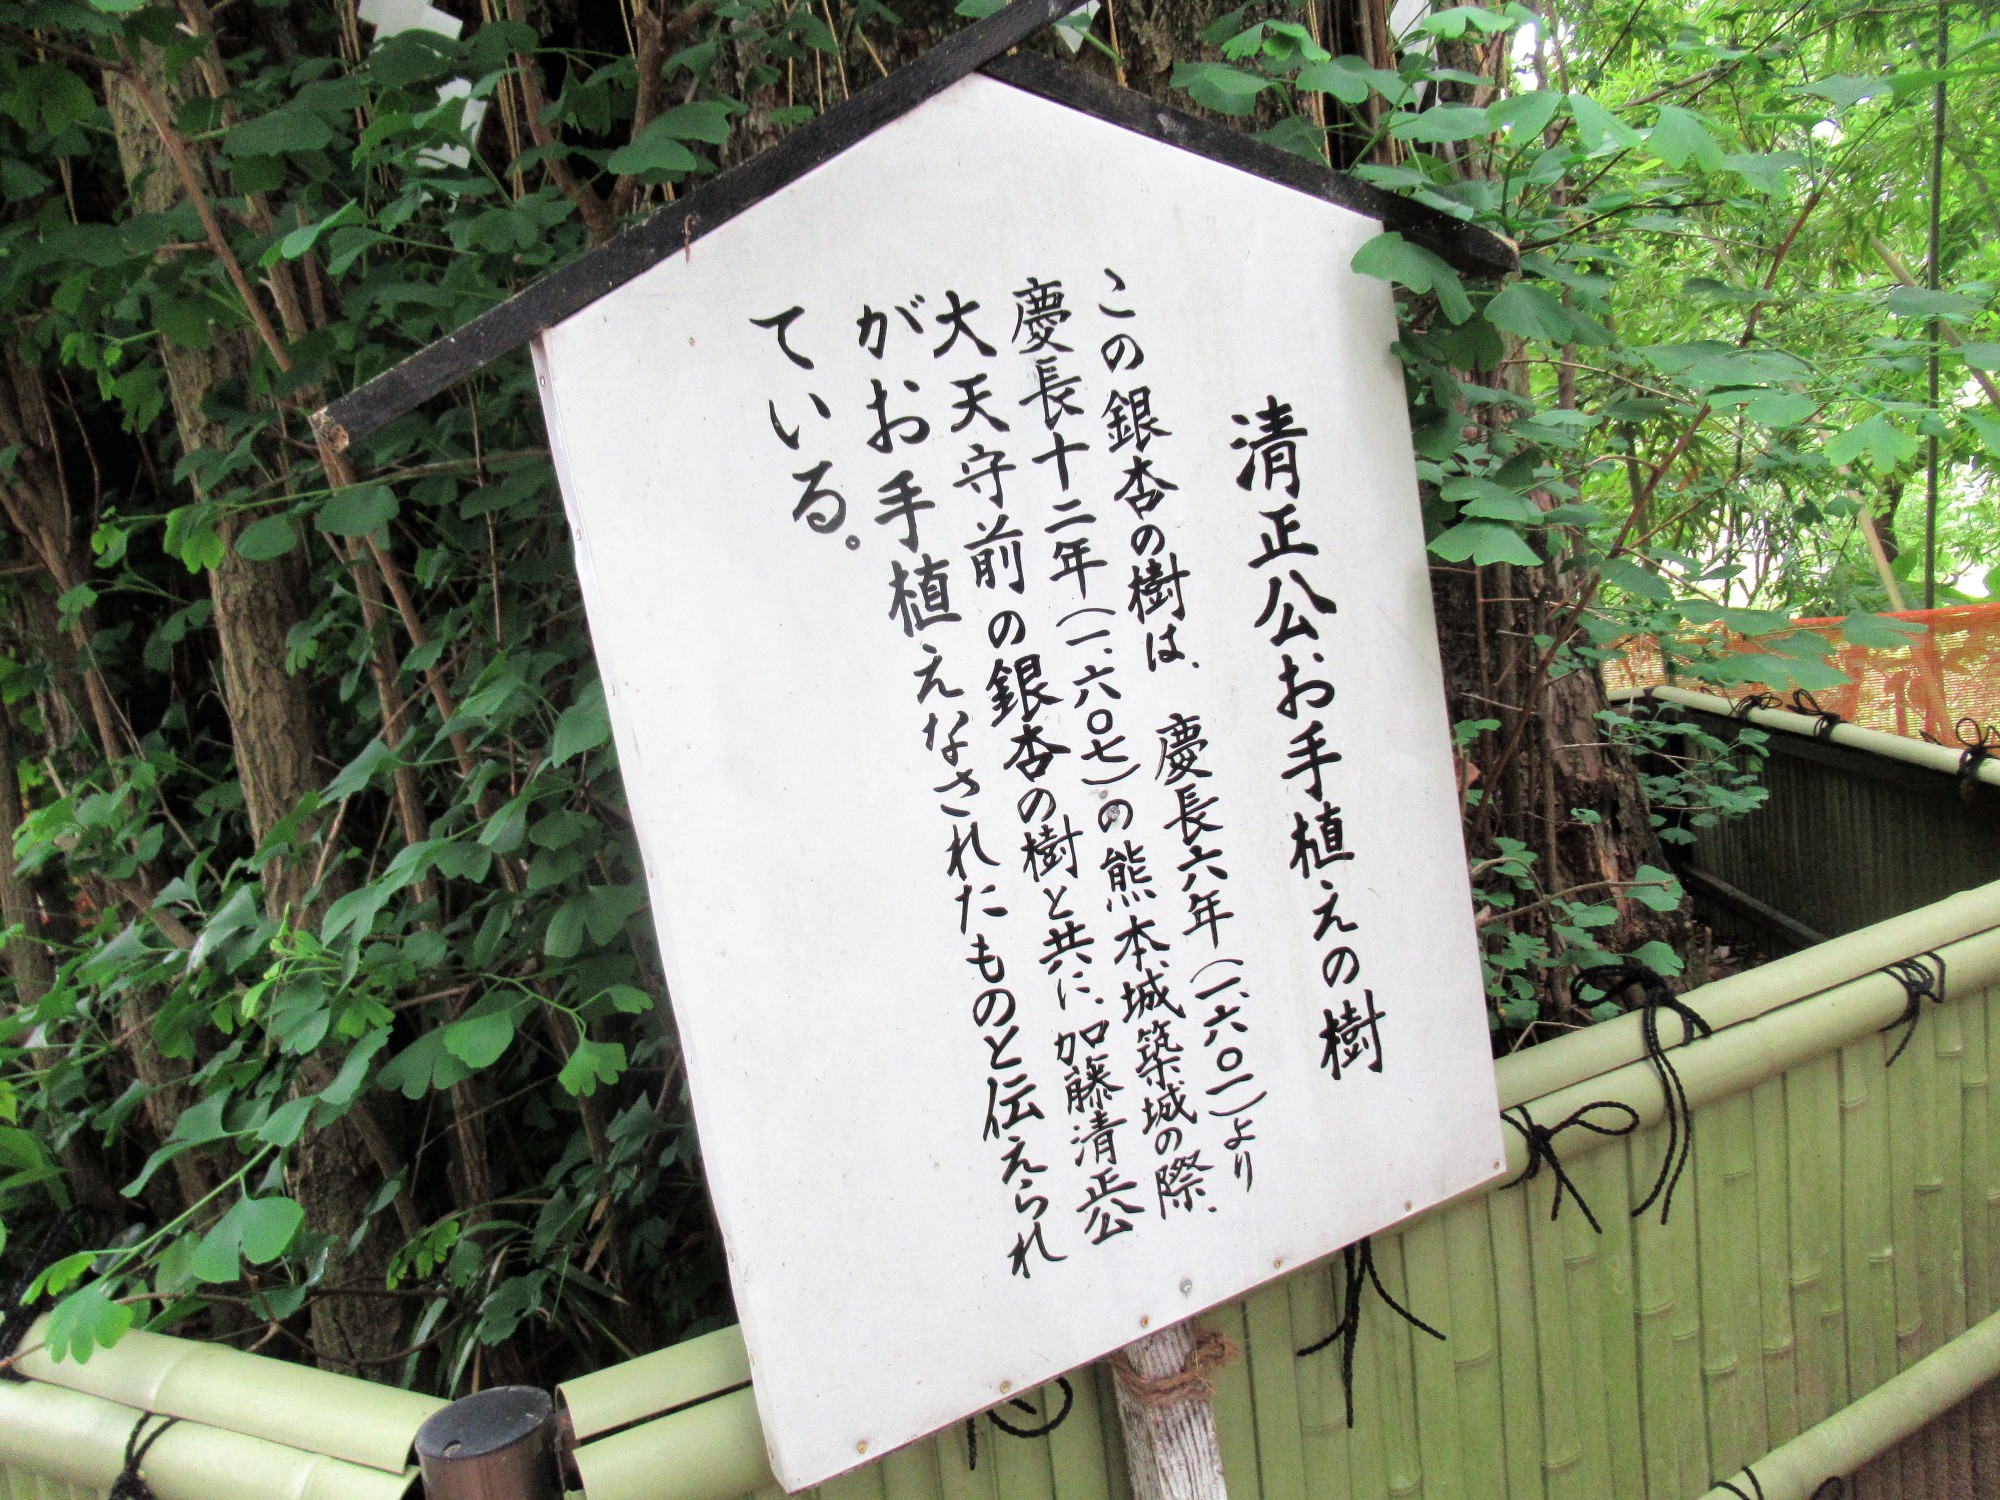 清正公お手植えの樹
この銀杏の樹は、慶長六年(一六〇一)より
慶長十二年(一六〇七)の熊本城築城の際、
大天守前の銀杏の樹と共に、加藤清正公
がお手植えなされたものと伝えられ
ている。